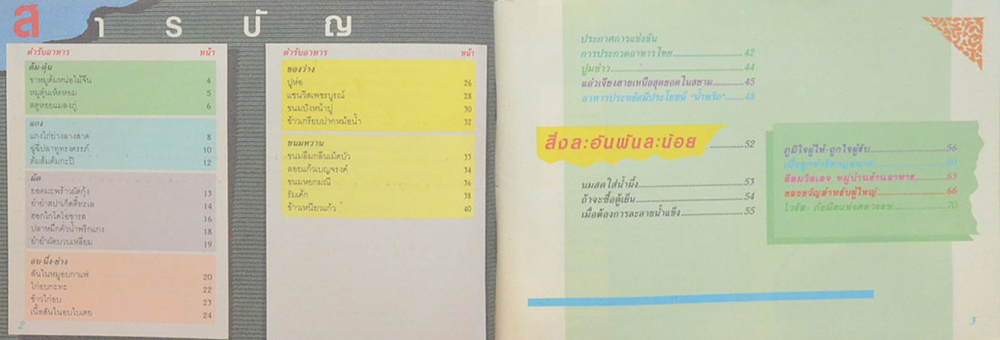 สารบัญ
ตำรับอาหาร หน้า
ต้ม-ตุ๋น
ขาหมูต้มหน่อไม้จีน 4
หมูตุ๋นเห็ดหอม 5
สตูหอยแมลงภู่ 6
แกง
แกงไก่ย่างลางสาด 8
ฉู่ฉี่ปลาทูทรงครรภ์ 10
ต้มส้มต้มกะปิ 12
ผัด
ยอดมะพร้าวผัดกุ้ง 13
ยำยำสปาเก็ตตี้ทะเล 14
ฮอกไกโดโอชารส 16
ปลาหมึกคั่วน้ำพริกแกง 18
ยำยำผัดบวบเหลี่ยม 19
อบ-นึ่ง-ย่าง
สันในหมูอบกาแฟ 20
ไก่อบกะทะ 22
ข้าวไก่อบ 23
เนื้อสันในอบใบเตย 24
2
ตำรับอาหาร หน้า
ของว่าง
ปูห่อ 26
แซนวิสเพชรบูรณ์ 28
ขนมปังหน้าปู 30
ข้าวเกรียบปากหม้อน้ำ 32
ขนมหวาน
ขนมลืมกลืนเม็ดบัว 33
ลอยแก้วเบญจรงค์ 34
ขนมหยกมณี 36
รับเค้ก 38
ข้าวเหนียวแก้ว 40
ประกาศการแข่งขัน
การประกวดอาหารไทย 42
ปูมข้าว 44
แอ่วเจียงฮายเหนือสุดยอดในสยาม 45
อาหารประหยัดมีประโยชน์ "น้ำพริก" 48
สิ่งละอันพันละน้อย 52
นมสดใส่น้ำผึ้ง 53
ถ้าจะซื้อตู้เย็น 54
เมื่อต้องการละลายน้ำแข็ง 55
ภูมิใจผู้ให้-ถูกใจผู้รับ 56
60
ซีฮอมวิลเลจ หมู่บ้านร้านอาหาร 63
ของขวัญสำหรับผู้ใหญ่ 66
70
3